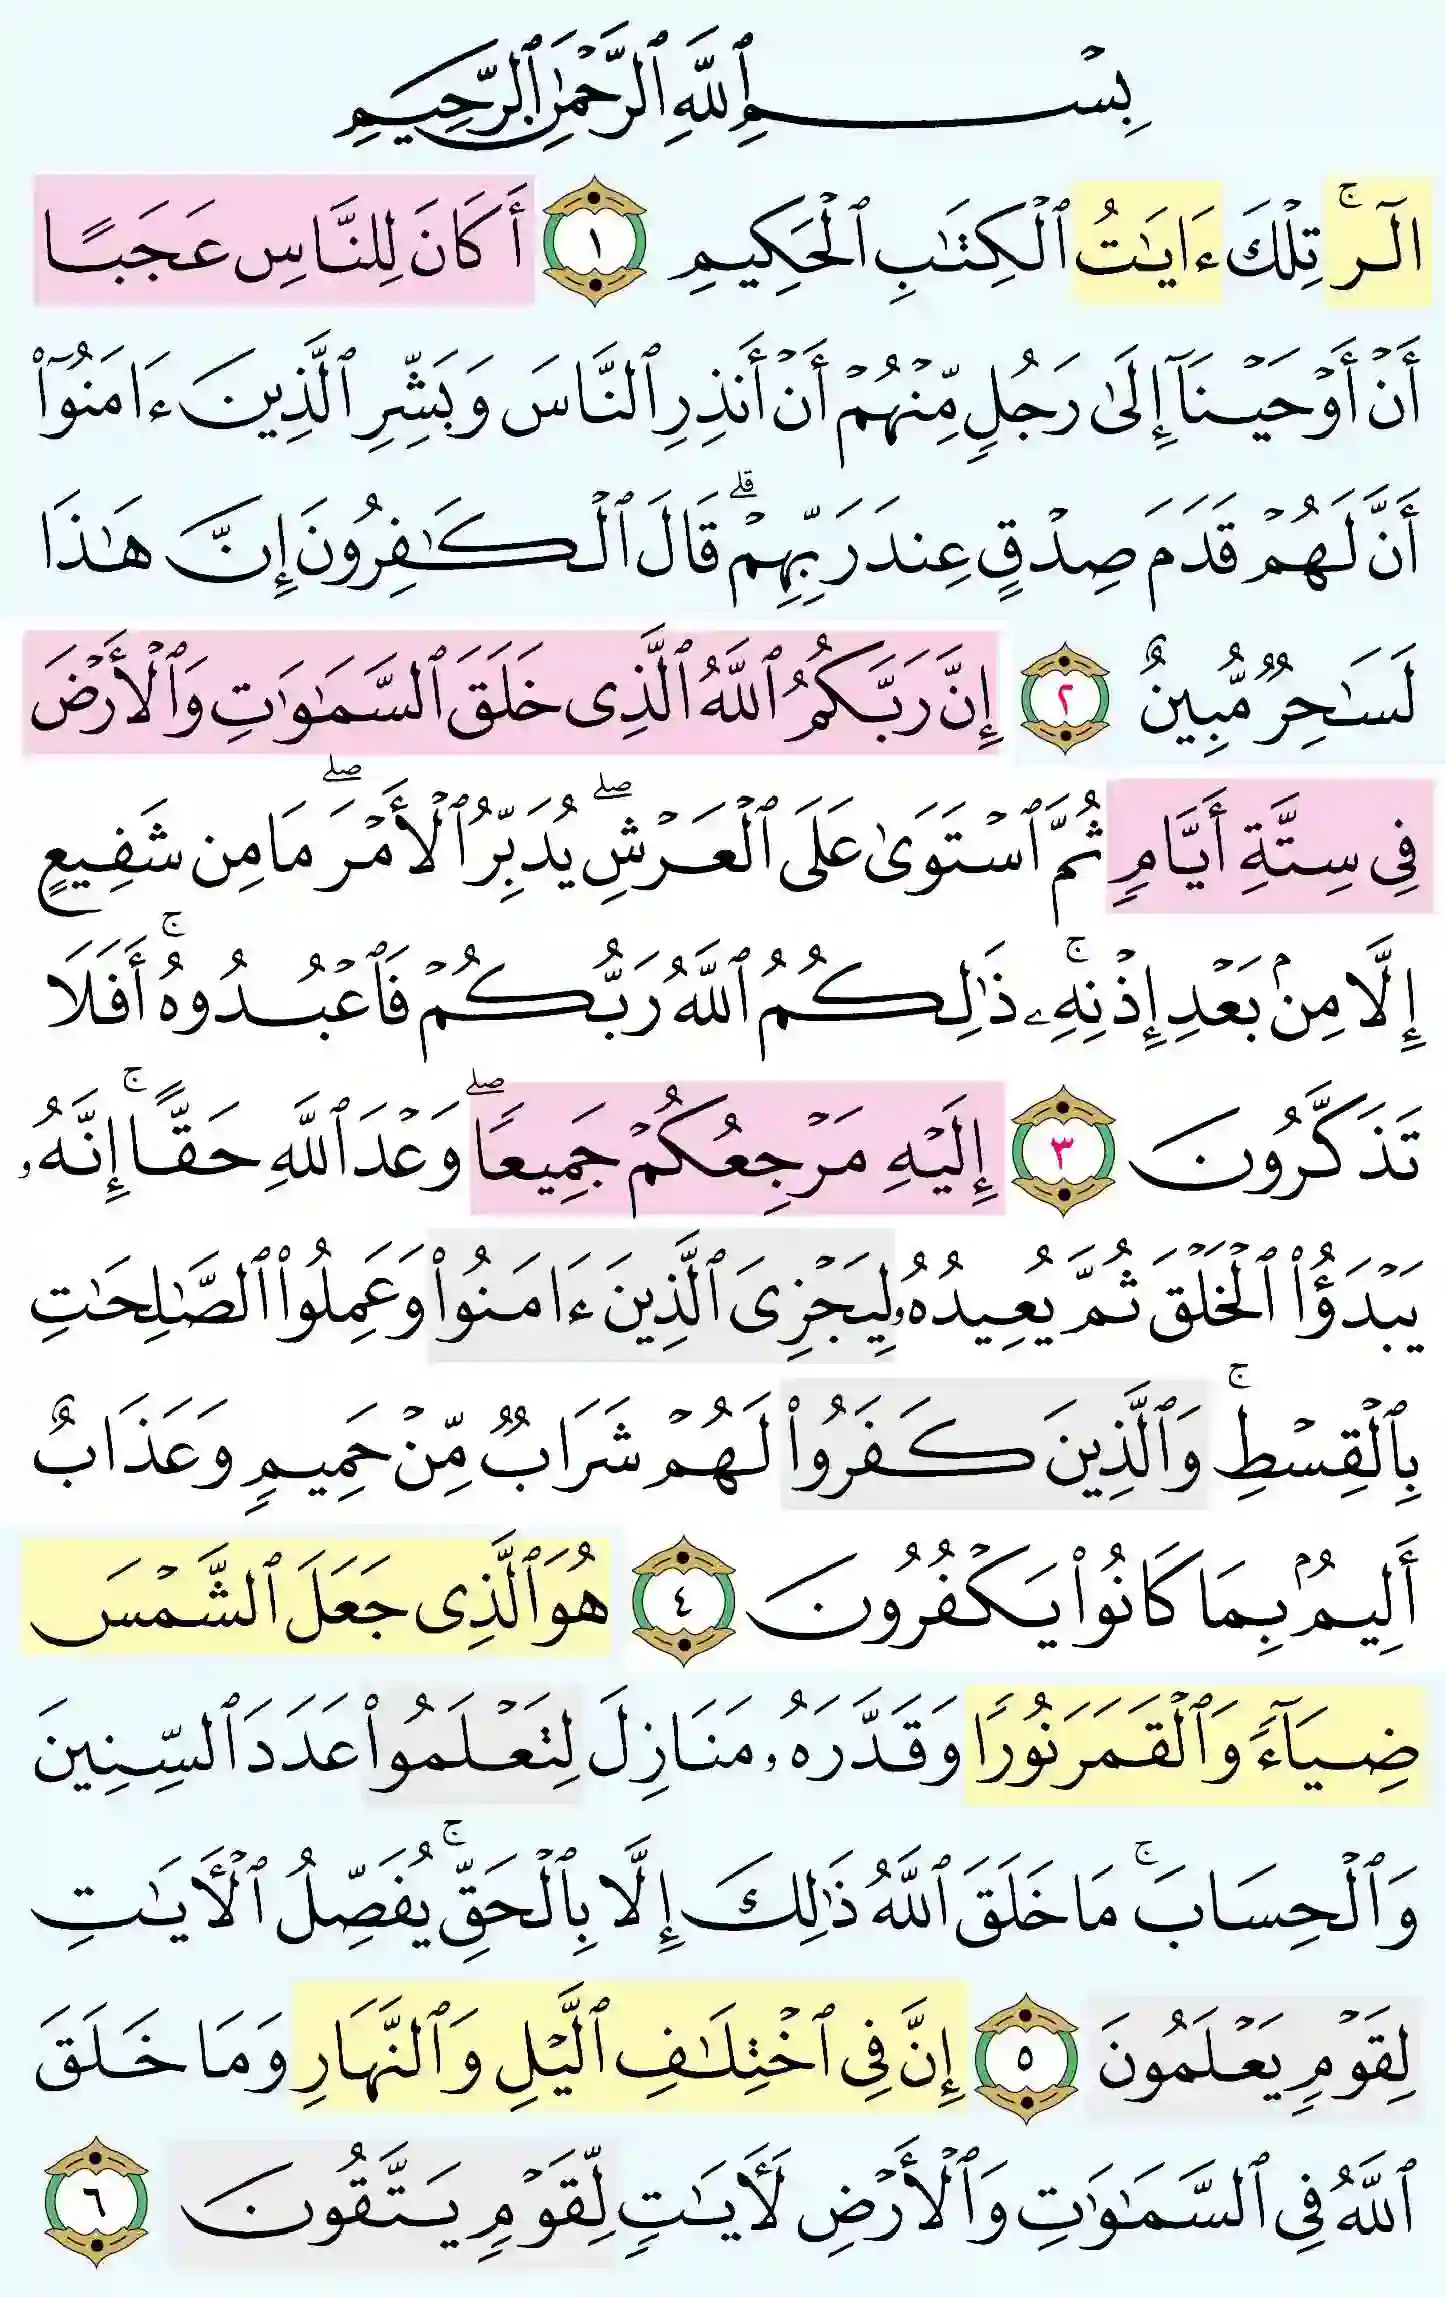 بِسْمِ ٱللَّهِ ٱلرَّحْمَٰنِ ٱلرَّحِيمِ
الٓرۚ تِلْكَ ءَايَٰتُ ٱلْكِتَٰبِ ٱلْحَكِيمِ ١ أَكَانَ لِلنَّاسِ عَجَبًا
أَنْ أَوْحَيْنَآ إِلَىٰ رَجُلٍ مِّنْهُمْ أَنْ أَنذِرِ ٱلنَّاسَ وَبَشِّرِ ٱلَّذِينَ ءَامَنُوٓا۟
أَنَّ لَهُمْ قَدَمَ صِدْقٍ عِندَ رَبِّهِمْۗ قَالَ ٱلْكَٰفِرُونَ إِنَّ هَٰذَا
لَسَٰحِرٌ مُّبِينٌ ٢ إِنَّ رَبَّكُمُ ٱللَّهُ ٱلَّذِى خَلَقَ ٱلسَّمَٰوَٰتِ وَٱلْأَرْضَ
فِى سِتَّةِ أَيَّامٍ ثُمَّ ٱسْتَوَىٰ عَلَى ٱلْعَرْشِۖ يُدَبِّرُ ٱلْأَمْرَۖ مَا مِن شَفِيعٍ
إِلَّا مِنۢ بَعْدِ إِذْنِهِۦۚ ذَٰلِكُمُ ٱللَّهُ رَبُّكُمْ فَٱعْبُدُوهُۚ أَفَلَا
تَذَكَّرُونَ ٣ إِلَيْهِ مَرْجِعُكُمْ جَمِيعًاۖ وَعْدَ ٱللَّهِ حَقًّاۚ إِنَّهُۥ
يَبْدَؤُا۟ ٱلْخَلْقَ ثُمَّ يُعِيدُهُۥ لِيَجْزِىَ ٱلَّذِينَ ءَامَنُوا۟ وَعَمِلُوا۟ ٱلصَّٰلِحَٰتِ
بِٱلْقِسْطِۚ وَٱلَّذِينَ كَفَرُوا۟ لَهُمْ شَرَابٌ مِّنْ حَمِيمٍ وَعَذَابٌ
أَلِيمٌۢ بِمَا كَانُوا۟ يَكْفُرُونَ ٤ هُوَ ٱلَّذِى جَعَلَ ٱلشَّمْسَ
ضِيَآءً وَٱلْقَمَرَ نُورًا وَقَدَّرَهُۥ مَنَازِلَ لِتَعْلَمُوا۟ عَدَدَ ٱلسِّنِينَ
وَٱلْحِسَابَۚ مَا خَلَقَ ٱللَّهُ ذَٰلِكَ إِلَّا بِٱلْحَقِّۚ يُفَصِّلُ ٱلْأَيَٰتِ
لِقَوْمٍ يَعْلَمُونَ ٥ إِنَّ فِى ٱخْتِلَٰفِ ٱلَّيْلِ وَٱلنَّهَارِ وَمَا خَلَقَ
ٱللَّهُ فِى ٱلسَّمَٰوَٰتِ وَٱلْأَرْضِ لَأَيَٰتٍ لِّقَوْمٍ يَتَّقُونَ ٦